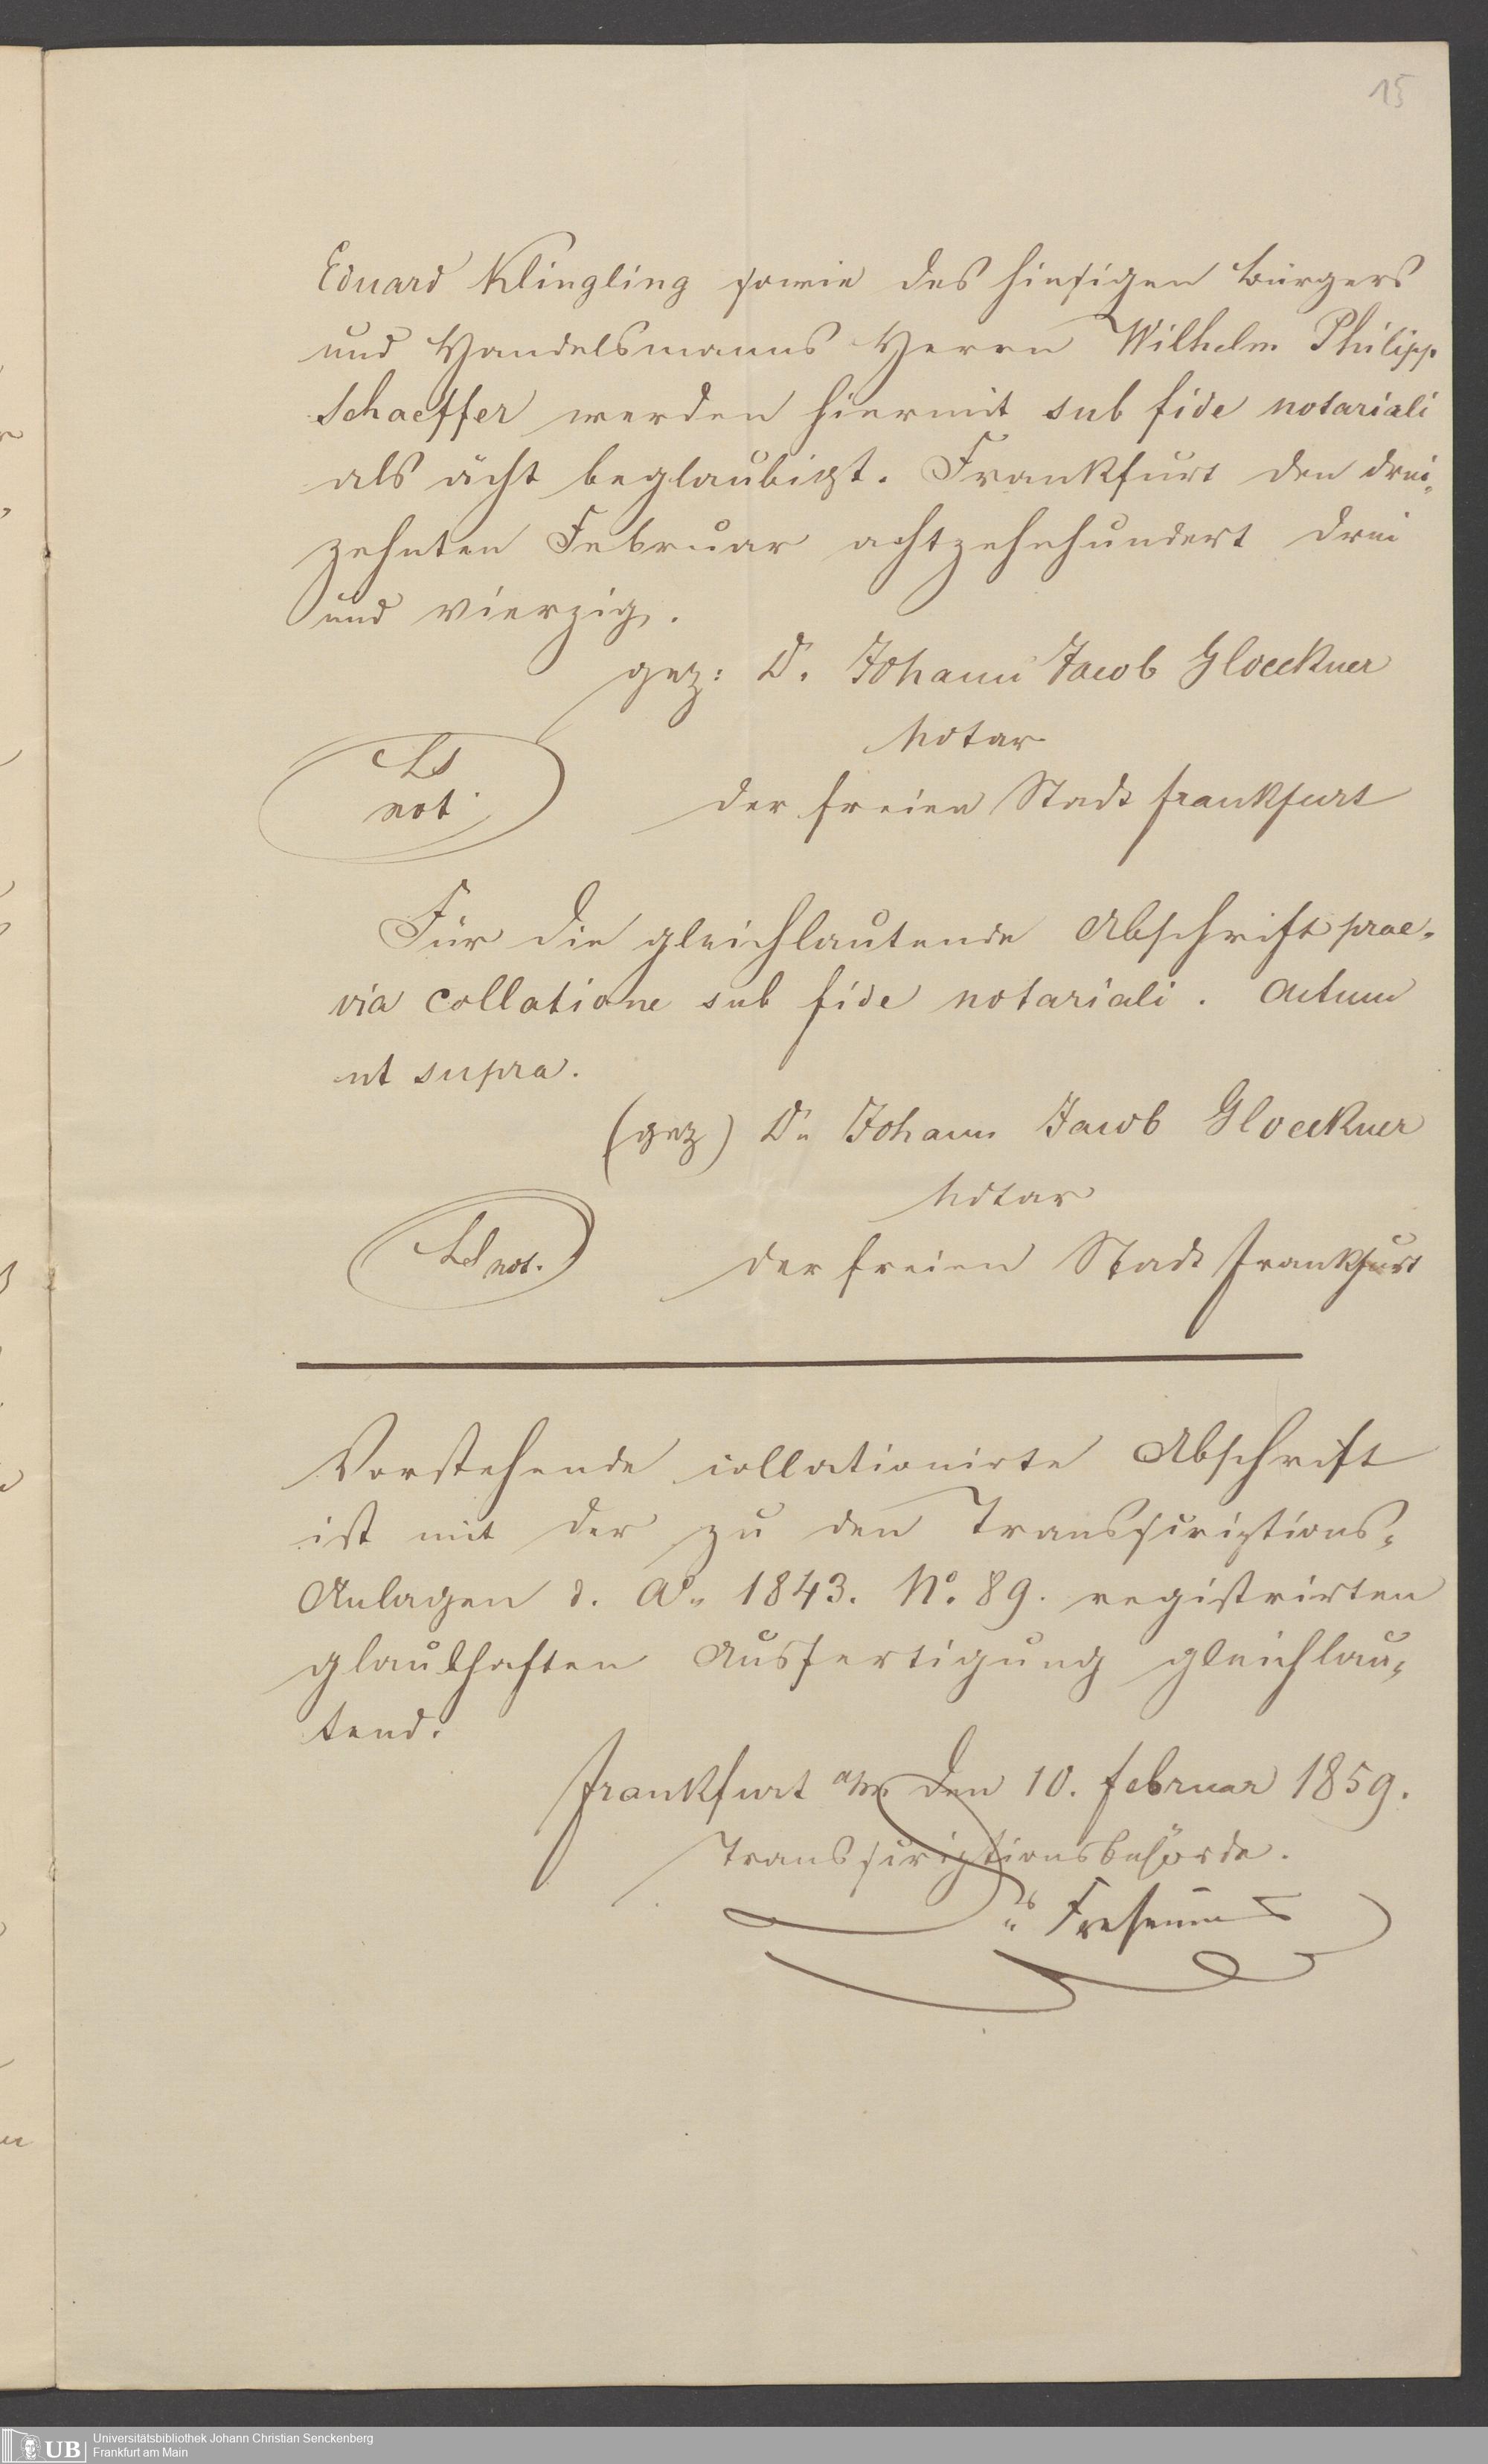 15
Eduard Klingling sowie des hiesigen Bürgers
und Handelsmanns Herrn Wilhelm Philipp
Schaeffer werden hiermit sub fide notariali
als ächt beglaubigt. Frankfurt den drei-
zehnten Februar achtzehnhundert drei
und vierzig.
gez: Dr. Johann Jacob Gloeckner
Notar
LS
not.
der freien Stadt Frankfurt
Für die gleichlautende Abschrift prae-
via collatione sub fide notariali. Actum
ut supra.
(gez) Dr. Johann Jacob Gloeckner
Notar
LS not.
der freien Stadt Frankfurt
Vorstehende collationirte Abschrift
ist mit der zu den Transscriptions-
Anlagen d. Ao. 1843. No. 89. registrirten
glaubhaften Ausfertigung gleichlau-
tend.
Frankfurt a/m den 10. Februar 1859.
Transscriptionsbehörde.
Dr Fresenius
UB
Universitätsbibliothek Johann Christian Senckenberg
Frankfurt am Main